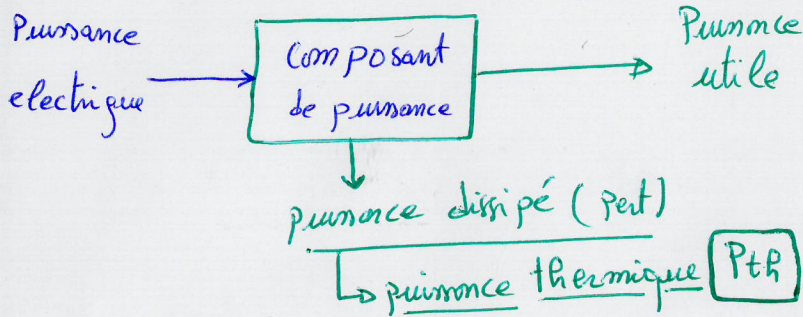 Puissance
electrique
Composant
de puissance
Puissance
utile
puissance dissipé (pert)
puissance thermique Pth